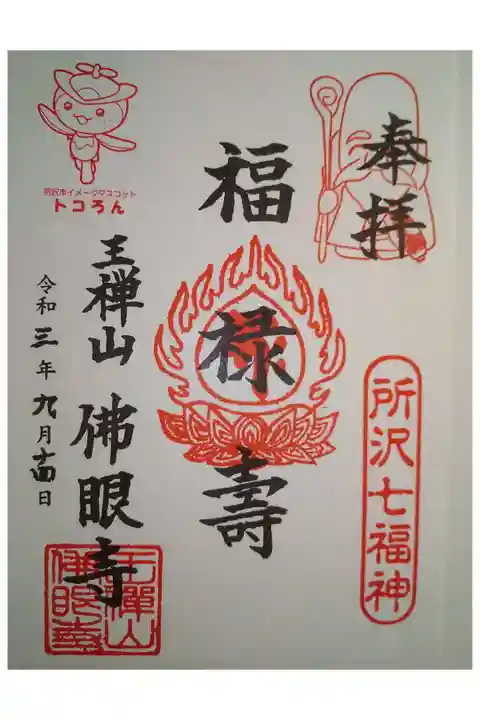 奉拝
所沢七福神
福禄壽
王禅山 佛眼寺
令和三年九月十四日
所沢市イメージマスコット
トコろん
王禪山
佛眼寺